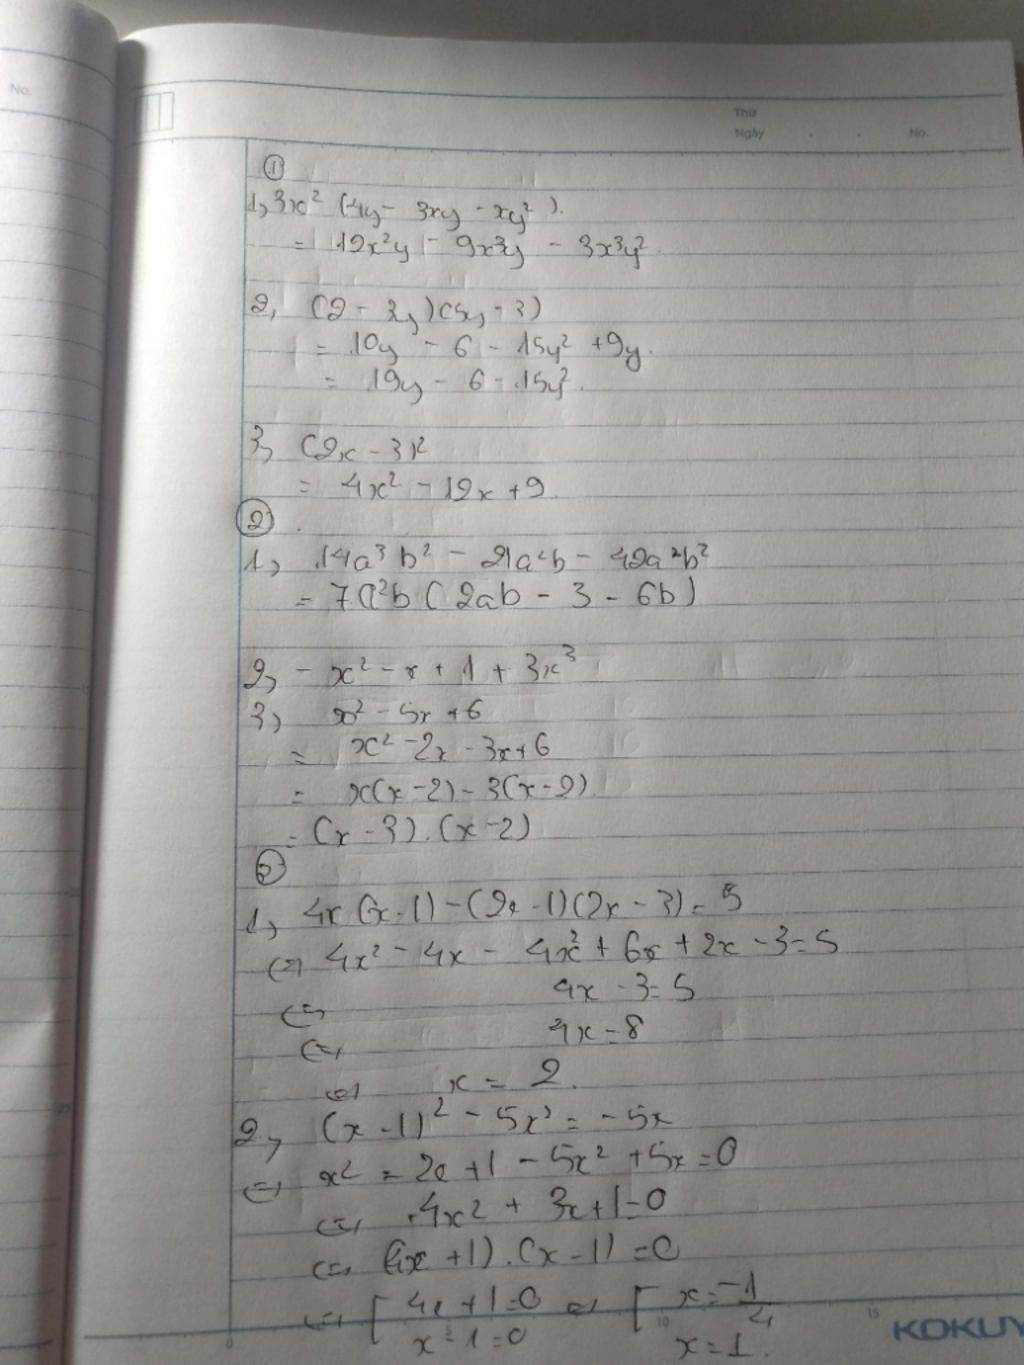 No.
Thứ
Ngày . . No.
①
1, 3x² (4y - 3xy - xy²).
= 12x²y - 9x³y - 3x³y²
2, (2 - 3y)(5y - 3)
= 10y - 6 - 15y² + 9y.
= 19y - 6 - 15y².
3, (2x - 3)²
= 4x² - 12x + 9.
②
1, 14a³b² - 21a²b - 42a²b²
= 7a²b (2ab - 3 - 6b)
2, - x² - x + 1 + 3x³
3, x² - 5x + 6
= x² - 2x - 3x + 6
= x(x - 2) - 3(x - 2)
= (x - 3).(x - 2)
③
1, 4x(x - 1) - (2x - 1)(2x - 3) = 5
⇔ 4x² - 4x - 4x² + 6x + 2x - 3 = 5
⇔ 4x - 3 = 5
⇔ 4x = 8
⇔ x = 2.
2, (x - 1)² - 5x² = - 5x
⇔ x² - 2x + 1 - 5x² + 5x = 0
⇔ -4x² + 3x + 1 = 0
⇔ (4x + 1).(x - 1) = 0
⇔ [ 4x + 1 = 0 ⇔ [ x = -1/4
x - 1 = 0 x = 1.
0 10 15 KOKUY